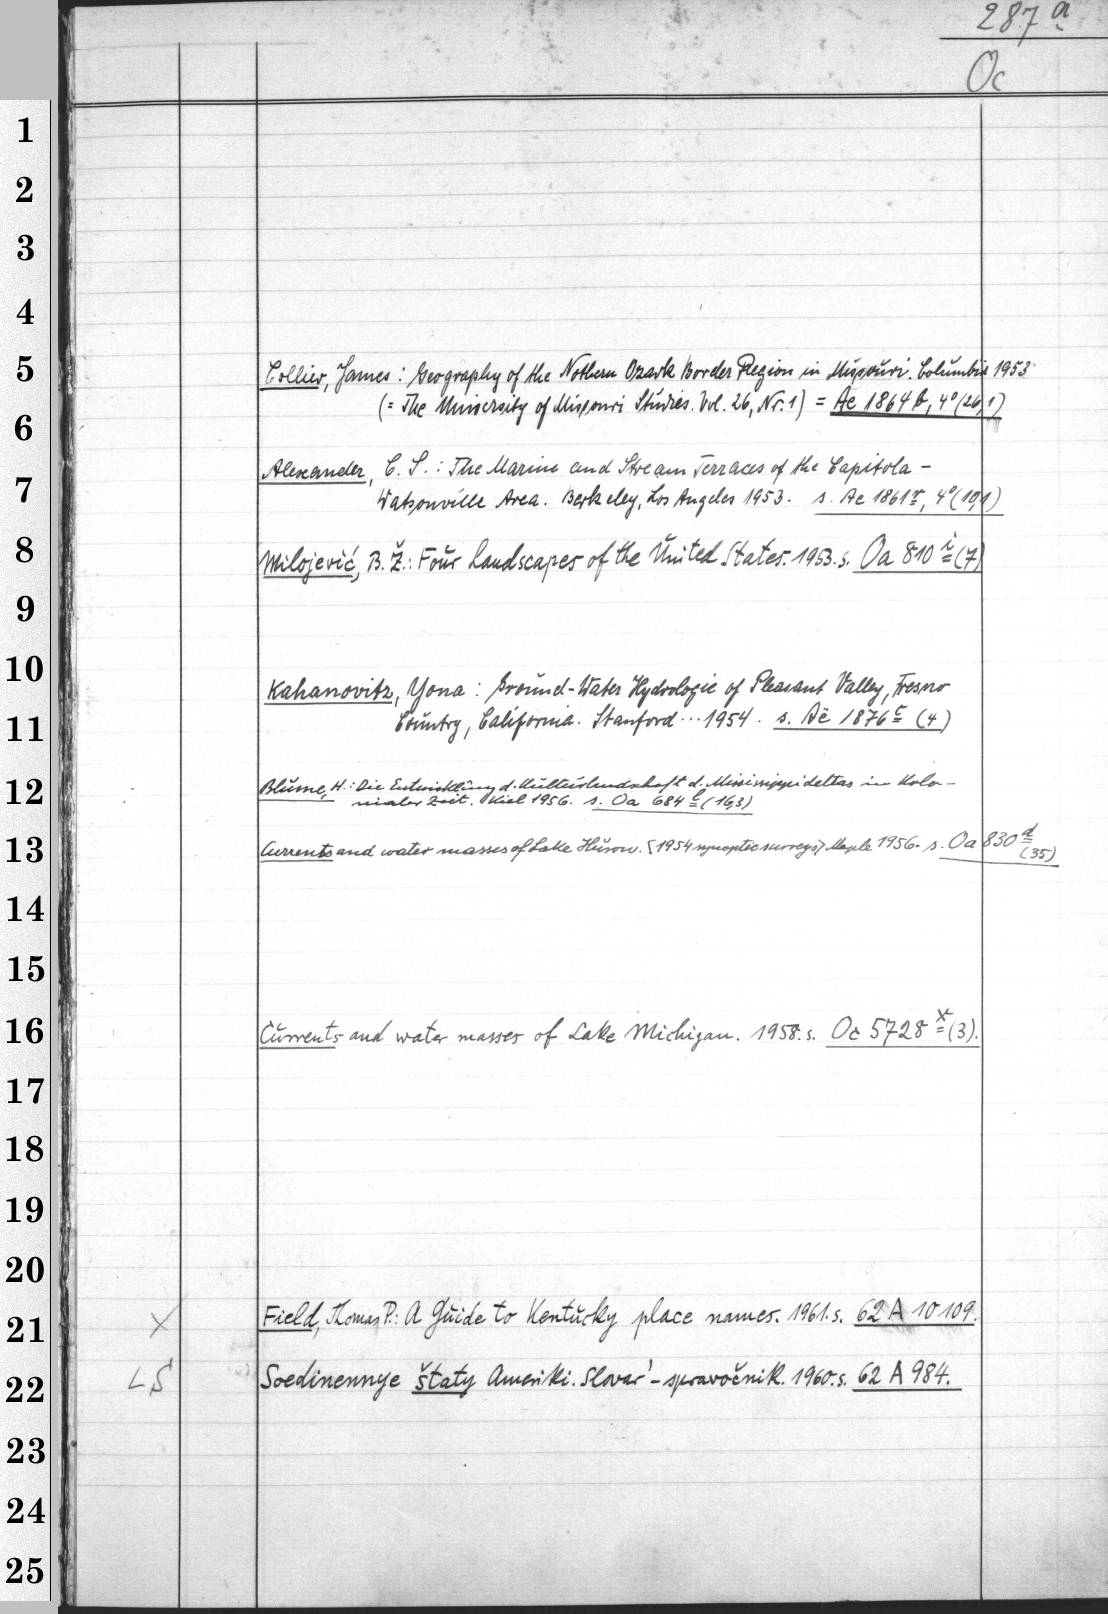 287 a
Oc
1
2
3
4
5
Collier, James: Geography of the Nothern Ozark Border Region in Missouri. Columbia 1953
(= The University of Missouri Studies. Vol. 26, Nr. 1) = Ae 1864 b, 4° (26,1)
6
Alexander, C. S.: The Marine and Stream Terraces of the Capitola-
7
Watsonville Area. Berkeley, Los Angeles 1953. s. Ae 1861 r, 4° (10,1)
8
Milojević, B. Ž.: Four Landscapes of the United States. 1953. s. Oa 810 i (7)
9
10
Kahanovitz, Yona: Ground-Water Hydrologie of Pleasant Valley, Fresno
11
Country, California. Stanford ... 1954. s. Ae 1876 c (4)
12
Blume, H.: Die Entwicklung d. Kulturlandschaft d. Missisippideltas in kolo-
nialer Zeit. Kiel 1956. s. Oa 684 b (16,3)
13
Currents and water masses of Lake Huron. (1954 synoptic surveys) Maple 1956. s. Oa 830 d
(35)
14
15
16
Currents and water masses of Lake Michigan. 1958. s. Oc 5728 x (3).
17
18
19
20
21
X Field, Thomas P.: A Guide to Kentucky place names. 1961. s. 62 A 10109.
22
LS Soedinennye štaty Ameriki. Slovar'-spravočnik. 1960. s. 62 A 984.
23
24
25